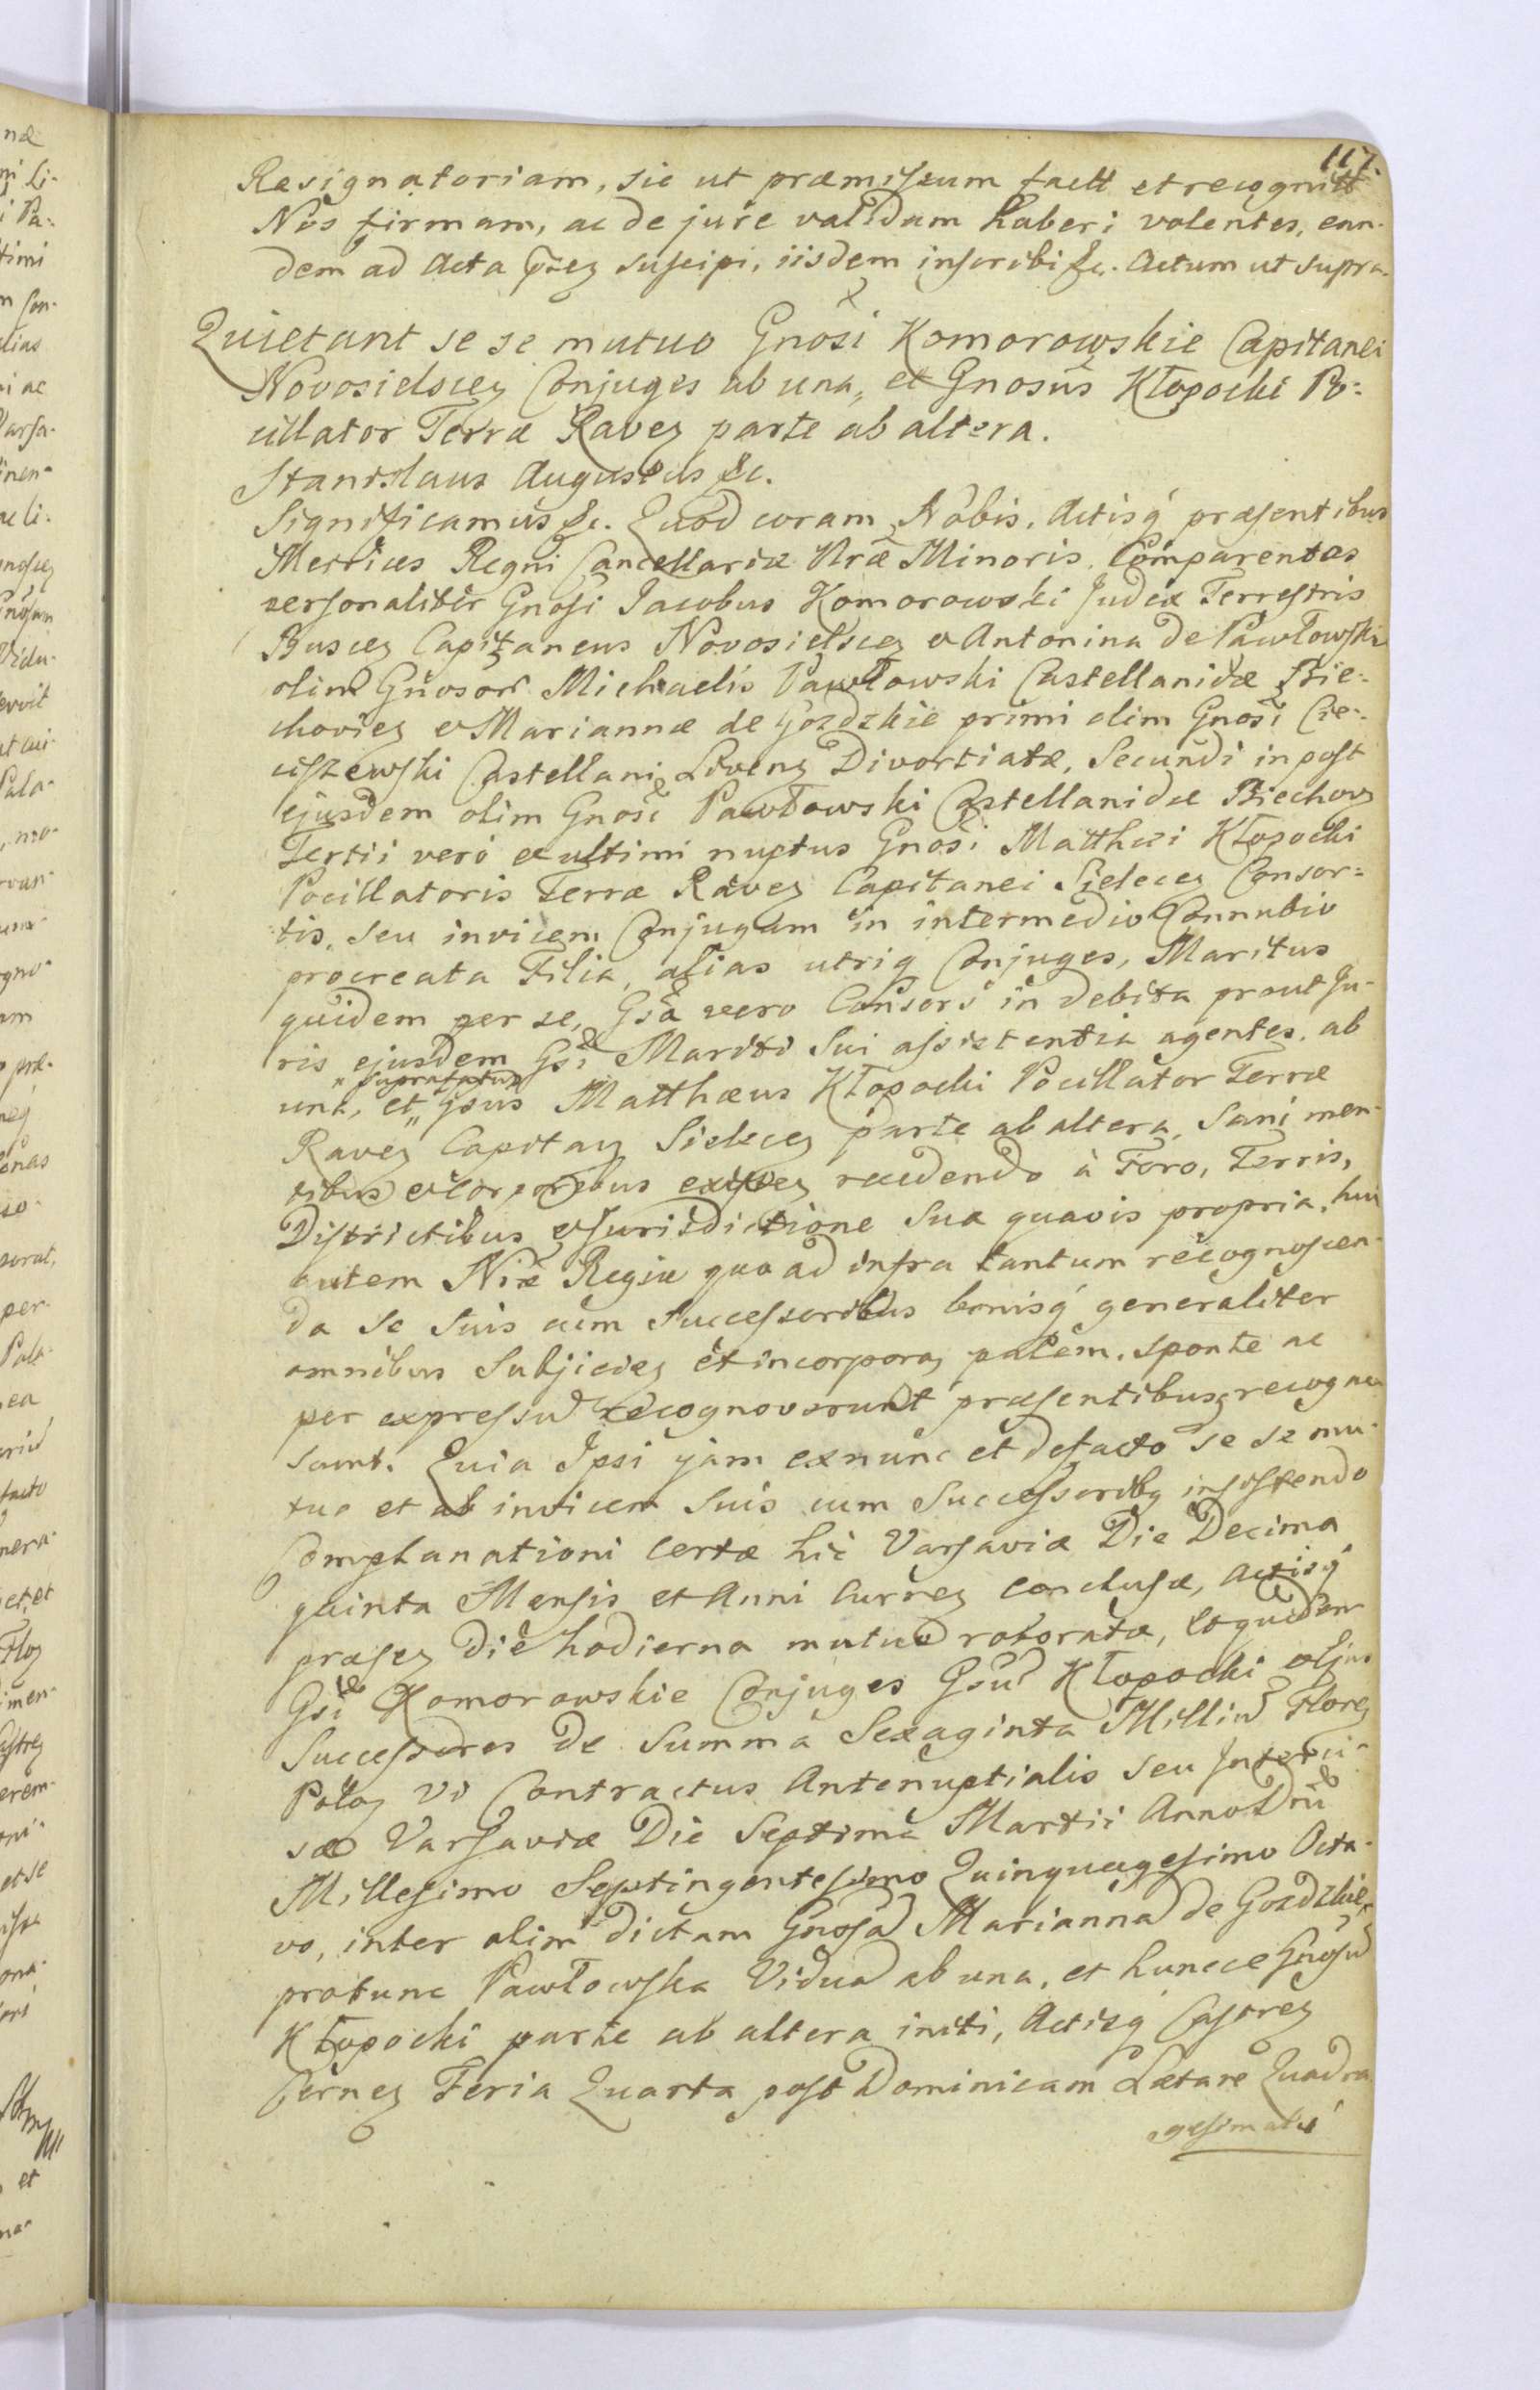 117.
Resignatoriam, sic ut præmissum facit et recognitt
Nos firmam, ac de jure validam haberi volentes, ean-
dem ad Acta præz suscipi, iisdem inscribi &c. Actum ut supra.
Quietant se se mutuo Gnosi Komorowskie Capitanei
Novosielscez Conjuges ab una, et Gnosus Kłopocki Po-
cillator Terræ Ravez parte ab altera.
Stanislaus Augustus &c.
Significamus &c. Quod coram Nobis, Actisq præsentibus
Metrices Regni Cancellariæ Nræ Minoris, Comparentes
personaliter Gnosi Jacobus Komorowski Judex Terrestris
Buscez Capitaneus Novosielscez & Antonina de Pawłowskie
olim Gnosor Michaelis Pawłowski Castellanidæ Bie-
choviez & Mariannæ de Gozdzkie primi olim Gnosi Cie-
ciszewski Castellani Livenz Divortiatæ, Secundi in post
ejusdem olim Gnosi Pawłowski Castellanidæ Biechovz
Tertii vero & ultimi nuptus Gnosi Matthæi Kłopocki
Pocillatoris Terræ Ravez Capitanei Sielecez Consor-
tis, seu invicem Conjugum in intermedio Connubio
procreata Filia, alias utriq Conjuges, Maritus
quidem per se, Gsa vero Consors in debita prout Ju-
ris ejusdem Gsi Mariti Sui assistentia agentes, ab
una, et "suprafatus" Gsus Matthæus Kłopocki Pocillator Terræ
Ravez Capitanz Sielecez parte ab altera, Sani men-
tibus & Corporibus existez recedendo à Foro, Terris,
Districtibus & Jurisdictione Sua quavis propria, huic
autem Nræ Regiæ quo ad infra tantum recognoscen-
da se suis cum Successoribus bonisq generaliter
omnibus Subjiciez et incorporaz palem, sponte ac
per expressu recognoverunt præsentibusq recogno
scunt. Quia Ipsi jam exnunc et defacto se se mu-
tuo et ab invicem suis cum Successoribq insistendo
Complanationi certæ hic Varsaviæ Die Decima
quinta Mensis et Anni currez conclusæ, Actisq
præsez die hodierna mutuo roboratæ, et quidem
Gsi Komorowskie Conjuges Gsu Kłopocki ejus
Successores de Summa Sexaginta Milliu Florez
Polоз vi Contractus Antenuptialis seu Interci-
sæ Varsaviæ Die Septima Martii Anno Dni
Millesimo Septingentesimo Quinquagesimo Octa-
vo, inter olim dictam Gnosa Marianna de Gozdzkie
protunc Pawłowska Vidua ab una, et huncce Gnosu
Kłopocki parte ab altera initi, Actisq Castrez
Cernez Feria Quarta post Dominicam Lætare Quadra
gesimale